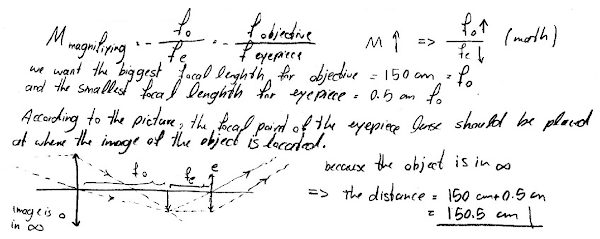 M magnifying = - fo/fe = - f objective / f eyepiece M ↑ => fo↑/fe↓ (math)
we want the biggest focal lenghth for objective = 150 cm = fo
and the smallest focal lenghth for eyepiece = 0.5 cm fo
According to the picture, the focal point of the eyepiece lense should be placed
at where the image of the object is located.
fo fe e
because the object is in ∞
=> the distance = 150 cm + 0.5 cm
= 150.5 cm
image is o
in ∞